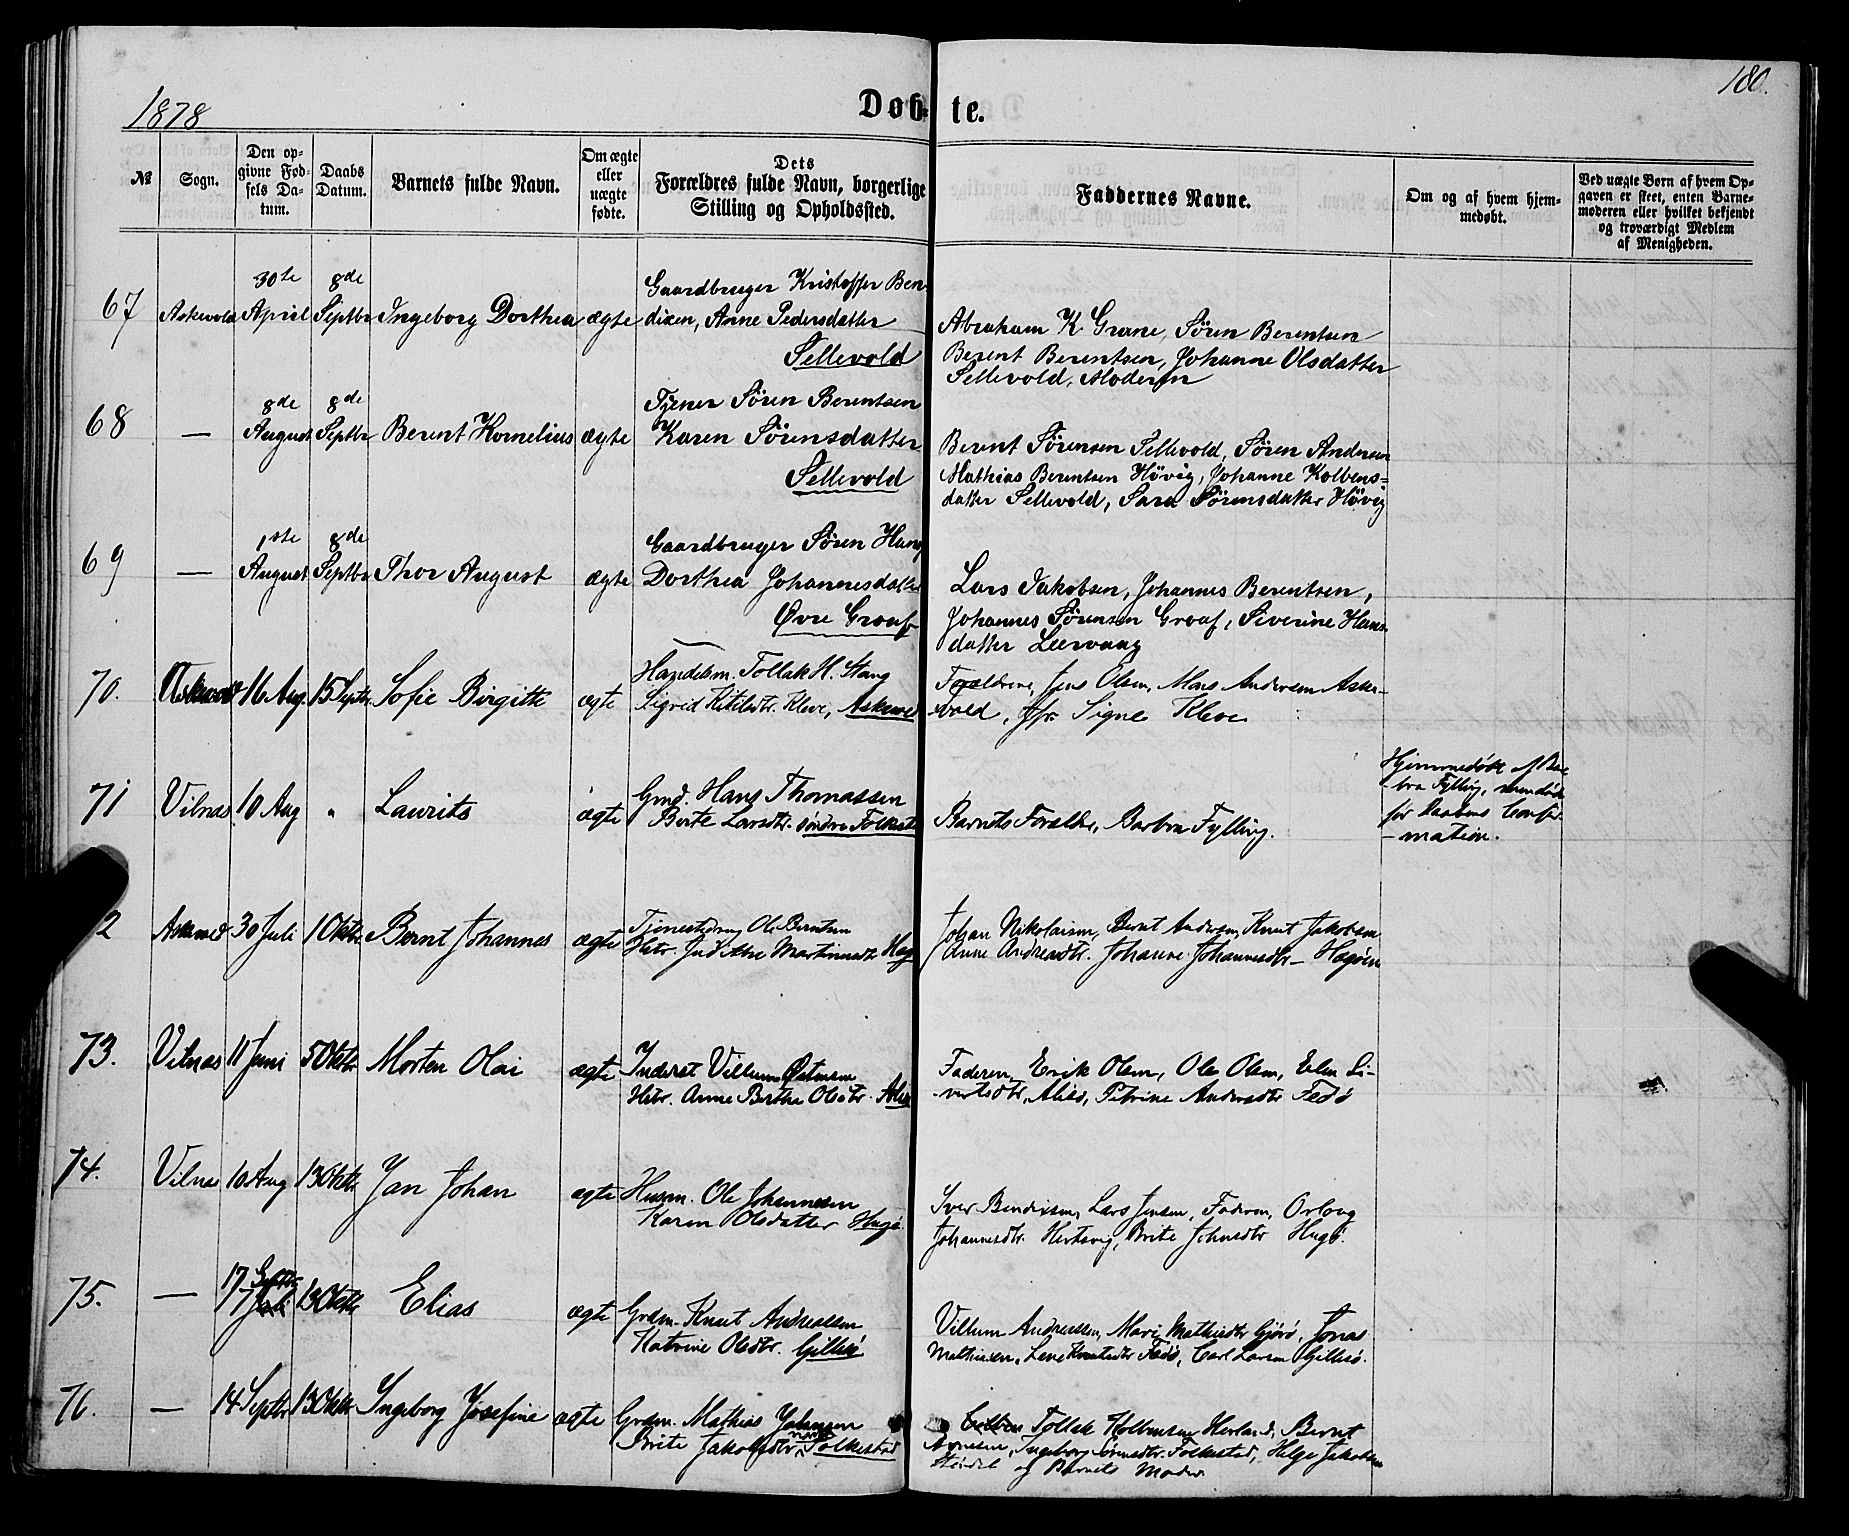 1878
Døb- te.
180.
№
Sogn.
Den op-
givne Fød-
sels Da-
tum.
Daabs
Datum.
Barnets fulde Navn.
Om ægte
eller
uægte
fødte.
Dets
Forældres fulde Navn, borgerlige
Stilling og Opholdssted.
Faddernes Navne.
Om og af hvem hjem-
medøbt.
Ved uægte Børn af hvem Op-
gaven er skeet, enten Barne-
moderen eller hvilket bekjendt
og troværdigt Medlem
af Menigheden.
67 Askevold 30te April 8de Septbr Ingeborg Dorthea ægte
Gaardbruger Kristoffer Ben-
dixen, Anne Pedersdatter
Sellevold
Abraham K. Grane, Sören Berentsen
Berent Berentsen, Johanne Olsdatter
Sellevold, Moderen
68 — 8de August 8de Septbr Berent Kornelius ægte
Tjener Sören Berentsen
Karen Sörensdatter
Sellevold
Berent Sörensen Sellevold, Sören Andersen
Mathias Berentsen Hövig, Johanne Kolbens-
datter Sellevold, Sara Sörensdatter Hövig
69 — 1ste August 8de Septbr Thor August ægte
Gaardbruger Sören Hans
Dorthea Johannesdatter
Øvre Groaf
Lars Jakobsen, Johannes Berentsen,
Johannes Sörensen Groaf, Siverine Hans-
datter Leervaag
70. Askevold 16 Aug. 15 Septbr. Sofie Birgitte ægte
Handelsm. Tollak H. Stang
Sigrid Ketilsdtr. Kleve, Askevold
Forældrene, Jens Olsen, Mons Andersen Aske-
vold, Jfr. Signe Kleve
71 Vilnæs 10 Aug " Laurits ægte
Gmd. Hans Thomassen
Berte Larsdtr. söndre Folkestad
Barnets Forældre, Barbra Fylling.
Hjemmedöbt af Bar-
bra Fylling, men död
för Daabens Confir-
mation.
2 Askevold 30 Juli 1 Oktbr Bernt Johannes ægte
Tjenestedreng Ole Berntsen
Johan Nikolaisen, Bernt Andersen, Knut Jakobsen
Anne Andreasdtr. Johanne Johannesdtr
73. Vilnæs 11 Juni 5 Oktbr Morten Olai ægte
Inderst Villum
Hstr. Anne Berthe Olsdtr.
Faderen, Erik Olsen, Ole Olsen, Elen Si-
vertsdtr, Petrine Andersdtr Fedö
74. Vilnæs 10 Aug 13 Oktbr Jan Johan ægte
Husm. Ole Johannesen
Karen Olsdatter Hugö
Iver Bendixen, Lars Jensen, Faderen, Orlaug
Johannesdtr. Hertevig, Brite Johnsdtr Hugö.
75. — 17 Septbr 13 Oktbr Elias ægte
Grdm. Knut Andreassen
Katrine Olsdtr. Gillesö
Villum Andreassen, Mari Mathisdtr Gjörö, Jonas
Mathiasen, Lene Knutsdtr Fedö, Carl Larsen Gillesö.
76. — 14 Septbr 13 Oktbr Ingeborg Josefine ægte
Grdm. Mathias Johansen
Brite Jakobsdtr, nordre Folkestad
Tollak Kolbensen Herland, Bernt
Ingeborg Folkestad, Helge Jakobsen
og Barnets Moder